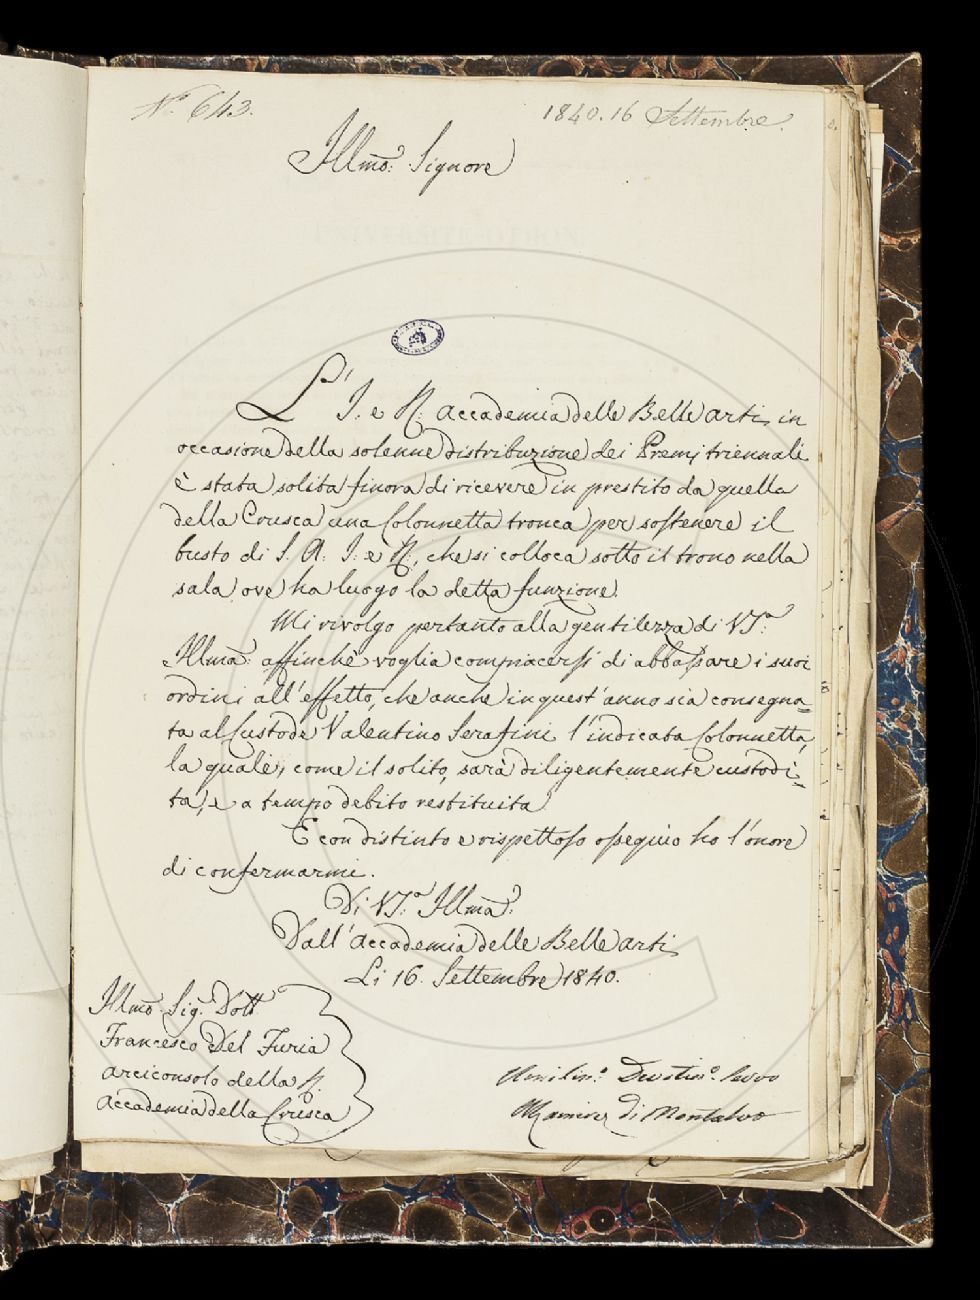 N.° 643.
1840. 16 Settembre.
Illmo: Signore
L' I. e R. Accademia delle Belle Arti, in
occasione della solenne distribuzione dei Premj triennali
è stata solita finora di ricevere in prestito da quella
della Crusca una Colonnetta tronca per sostenere il
busto di S. A. I. e R., che si colloca sotto il trono nella
sala ove ha luogo la detta funzione.
Mi rivolgo pertanto alla gentilezza di VS.a
Illma: affinchè voglia compiacersi di abbassare i suoi
ordini all'effetto, che anche in quest'anno sia consegna=
ta al Custode Valentino Serafini l'indicata Colonnetta,
la quale, come il solito, sarà diligentemente custodi=
ta, e a tempo debito restituita
E con distinto e rispettoso ossequio ho l'onore
di confermarmi.
Di VS.a Illma:
Dall'Accademia delle Belle Arti
Li 16. Settembre 1840.
Illmo Sig. Dott.
Francesco Del Furia
Arciconsolo della R.
Accademia della Crusca
Umiliss.o Devotiss.o Servo
Ramirez di Montalvo